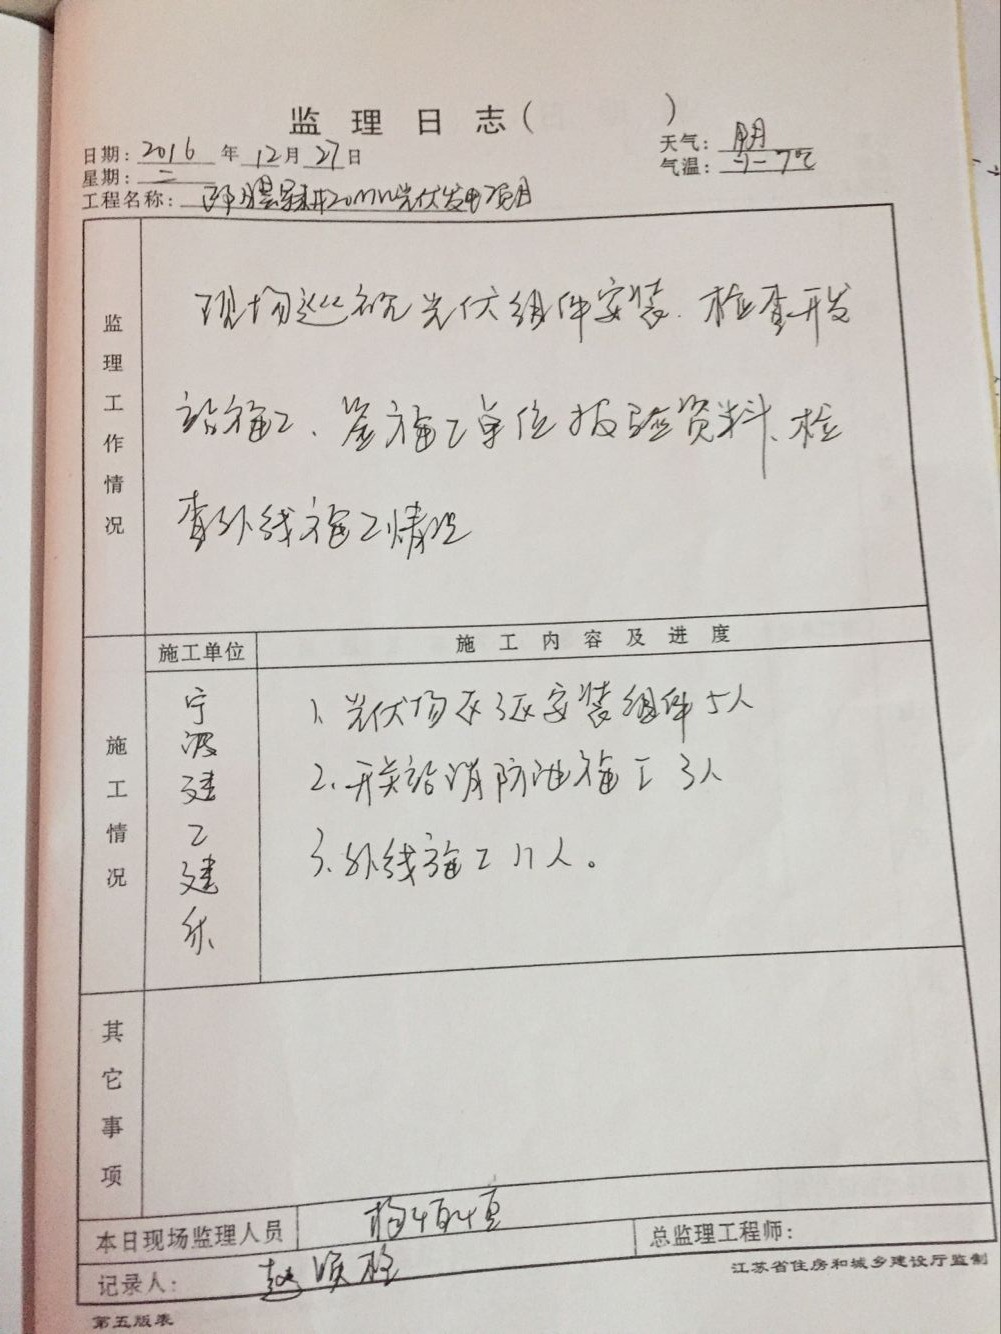 监理日志( )
日期: 2016 年 12 月 27 日
天气: 阴
星期: 二
气温: -1-7℃
工程名称: 20MW光伏发电项目
监理工作情况
现场巡视光伏组件安装、检查开发
站施工、签施工单位报验资料、检
查外线施工情况
施工情况
施工单位
施工内容及进度
宁波建工建乐
1、光伏场区3区安装组件5人
2、开关站消防池施工3人
3、外线施工11人。
其它事项
本日现场监理人员
总监理工程师:
记录人: 赵
江苏省住房和城乡建设厅监制
第五版表